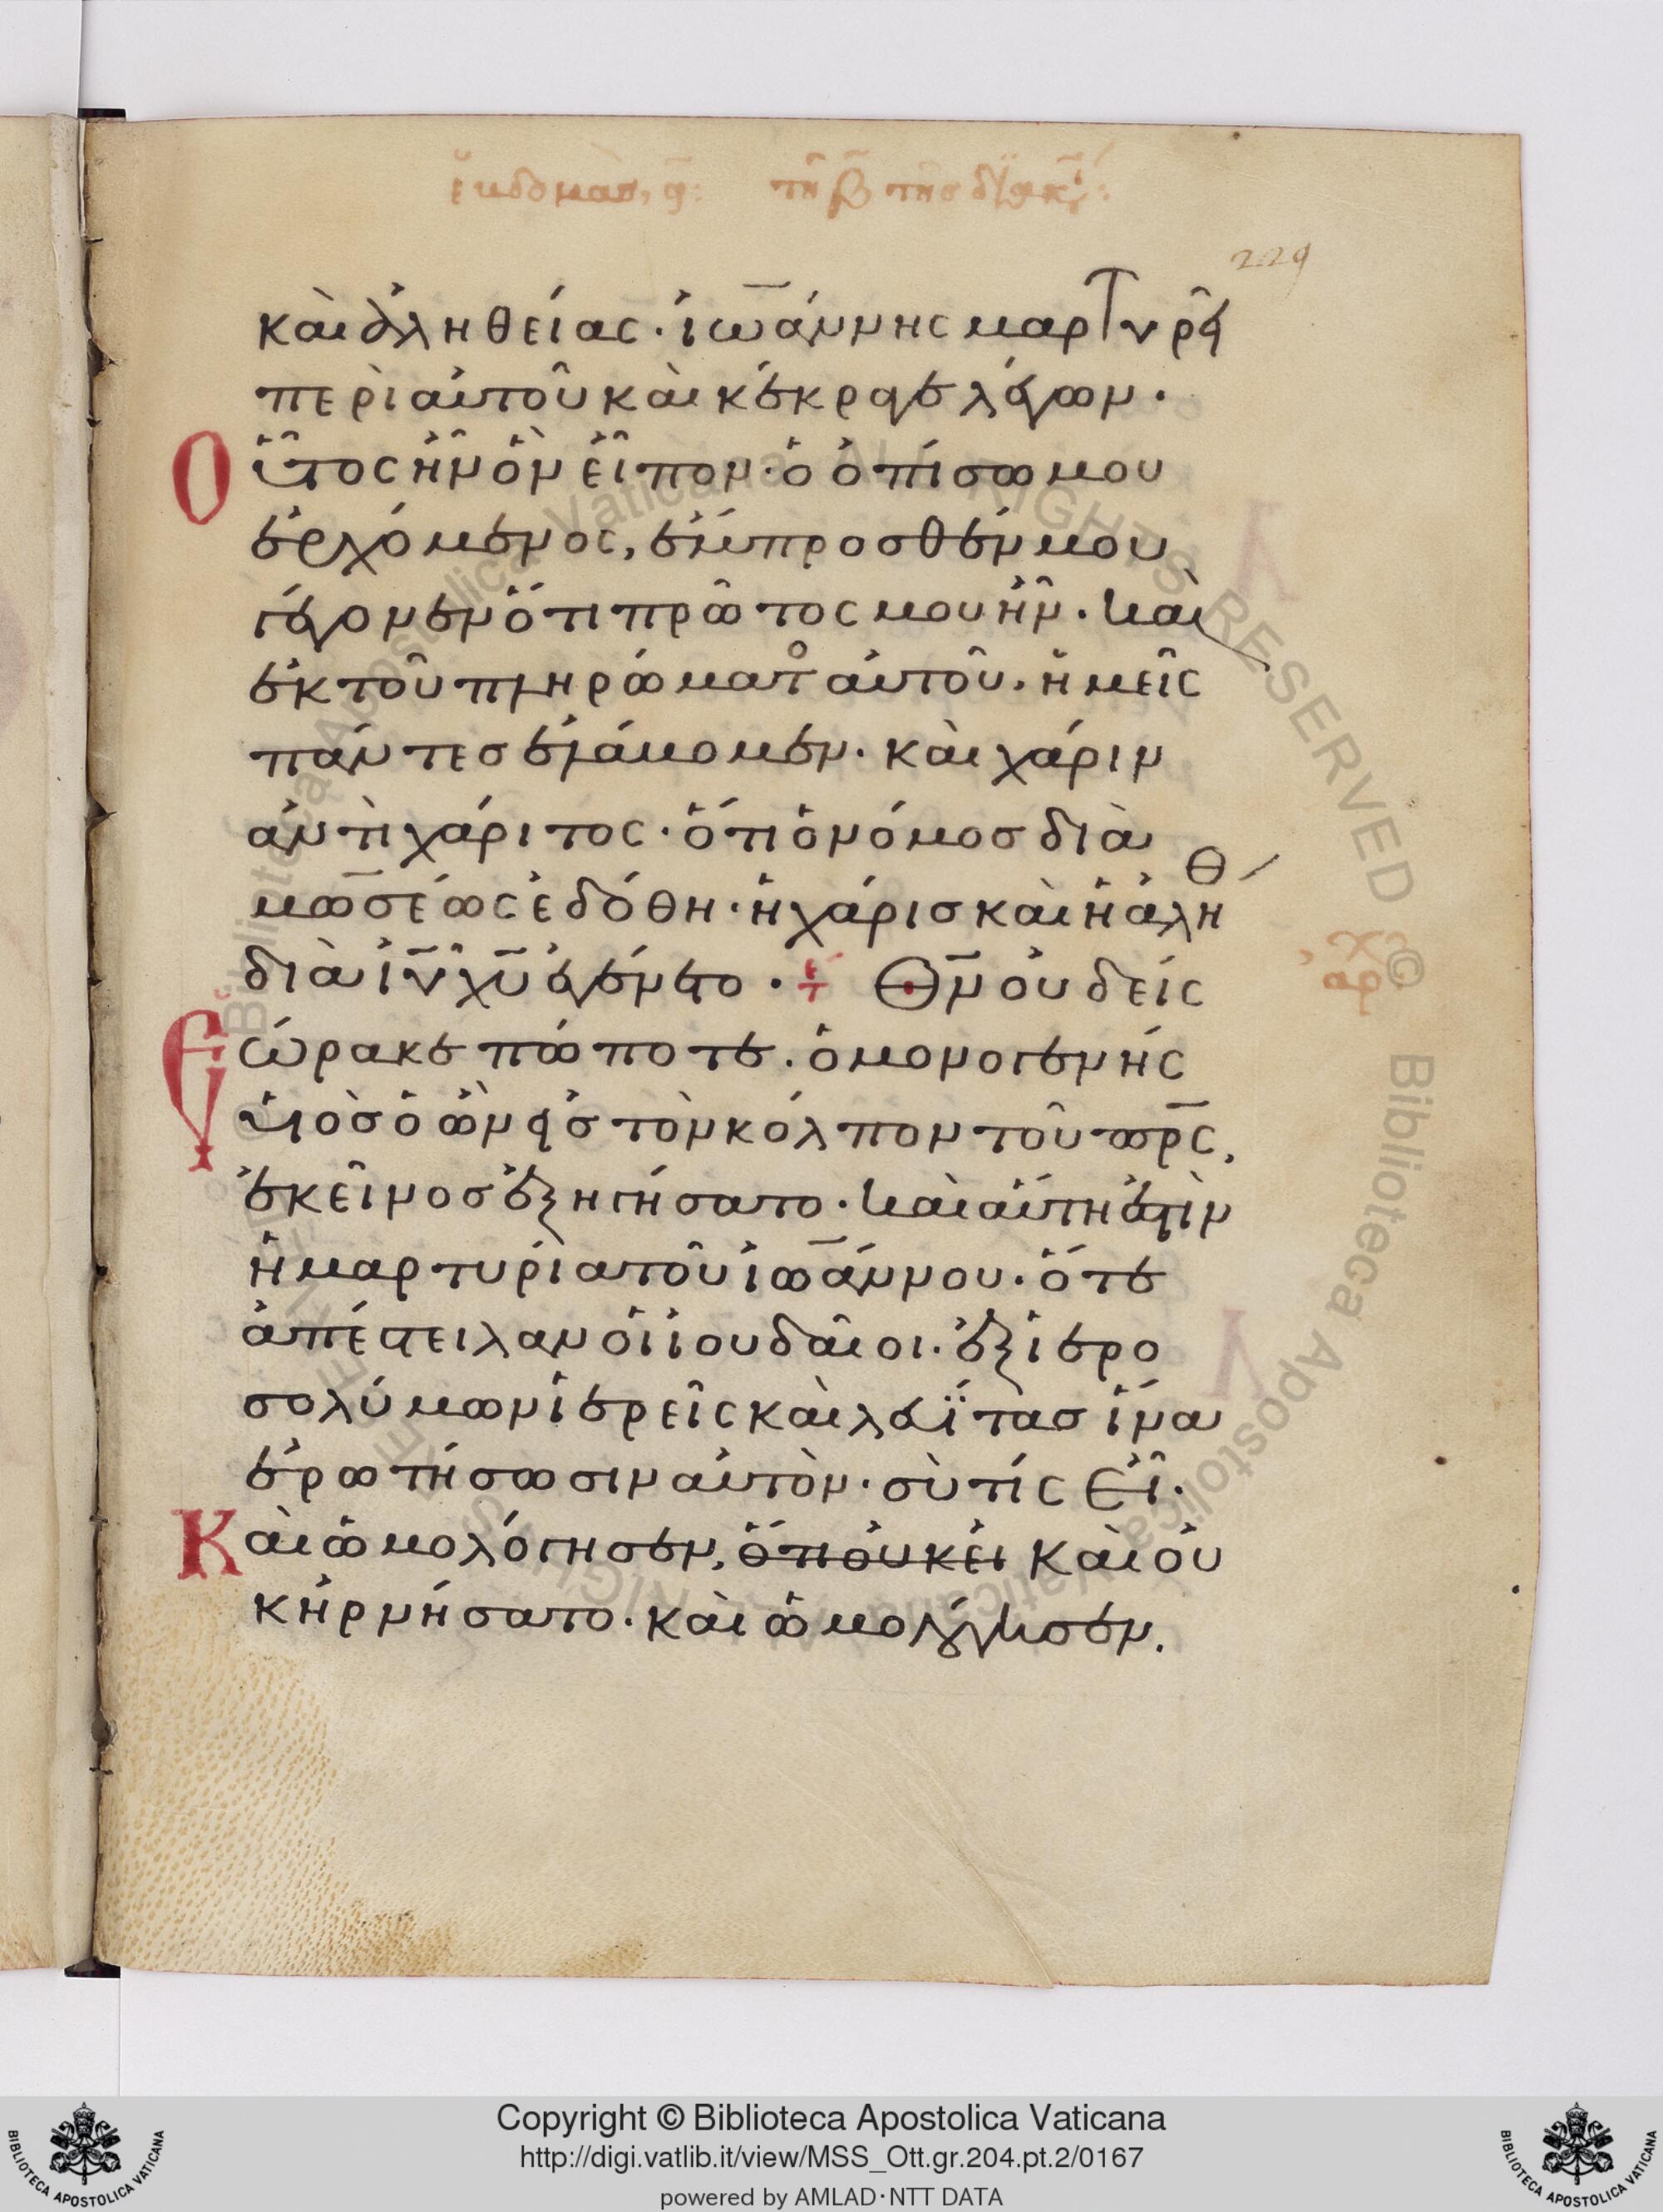 ἑβδομὰς α: τῆ β τῆς δϊακι:
229
καὶ ἀληθείας· ἰω̅άννης μαρτυρεῖ
περὶ αὐτοῦ καὶ κέκραγε λέγων·
Οὗτος ἦν ὃν εἶπον· ὁ ὀπίσω μου
ἐρχόμενος, ἔμπροσθέν μου
γέγονεν ὅτι πρῶτος μου ἦν· καὶ
ἐκ τοῦ πληρώματο αὐτοῦ· ἡμεῖς
πάντες ἐλάβομεν· καὶ χάριν
ἀντὶ χάριτος· ὅτι ὁ νόμος διὰ
μω̅σέως ἐδόθη· ἡ χάρις καὶ ἡ ἀλήθ
διὰ ἰ̅υ̅ χ̅υ̅ ἐγένετο· τε Θ̅ν̅ οὐδείς
Ἑώρακε πώποτε· ὁ μονογενής
υἱὸς ὁ ὢν εἰς τὸν κόλπον τοῦ π̅ρ̅ς̅,
ἐκεῖνος ἐξηγήσατο· καὶ αὕτη ἐστὶν
ἡ μαρτυρία τοῦ ἰω̅άννου· ὅτε
ἀπέστειλαν οἱ ἰουδαῖοι· ἐξ ἱερο
σολύμων ἱερεῖς καὶ λευΐτας ἵνα
ἐρωτήσωσιν αὐτὸν· σὺ τίς εἶ·
Καὶ ὡμολόγησεν, ὅτι οὐκ εἰ καὶ οὐ
κ ἠρνήσατο· καὶ ὡμολόγησεν.
Copyright © Biblioteca Apostolica Vaticana
http://digi.vatlib.it/view/MSS_Ott.gr.204.pt.2/0167
powered by AMLAD·NTT DATA
BIBLIOTECA APOSTOLICA VATICANA
BIBLIOTECA APOSTOLICA VATICANA